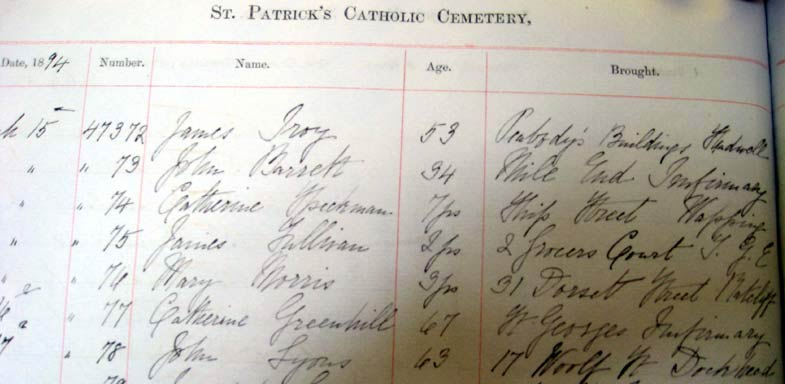 ST. PATRICK'S CATHOLIC CEMETERY,
Date, 1894 Number. Name. Age. Brought.
h 15 47372 James Troy 53 Peabody's Buildings
" " 73 John Barrett 34 Mile End Infirmary
" " 74 Catherine Speckman 7yrs Ship Street Wapping
" " 75 James Sullivan 2yrs 2 Grocers Court S. G. E
" " 76 Mary Morris 3yrs 31 Dorset Street Ratcliff
" 77 Catherine Greenhill 67 St Georges Infirmary
" 78 John Lyons 63 17 Woolf St Dockhead
79